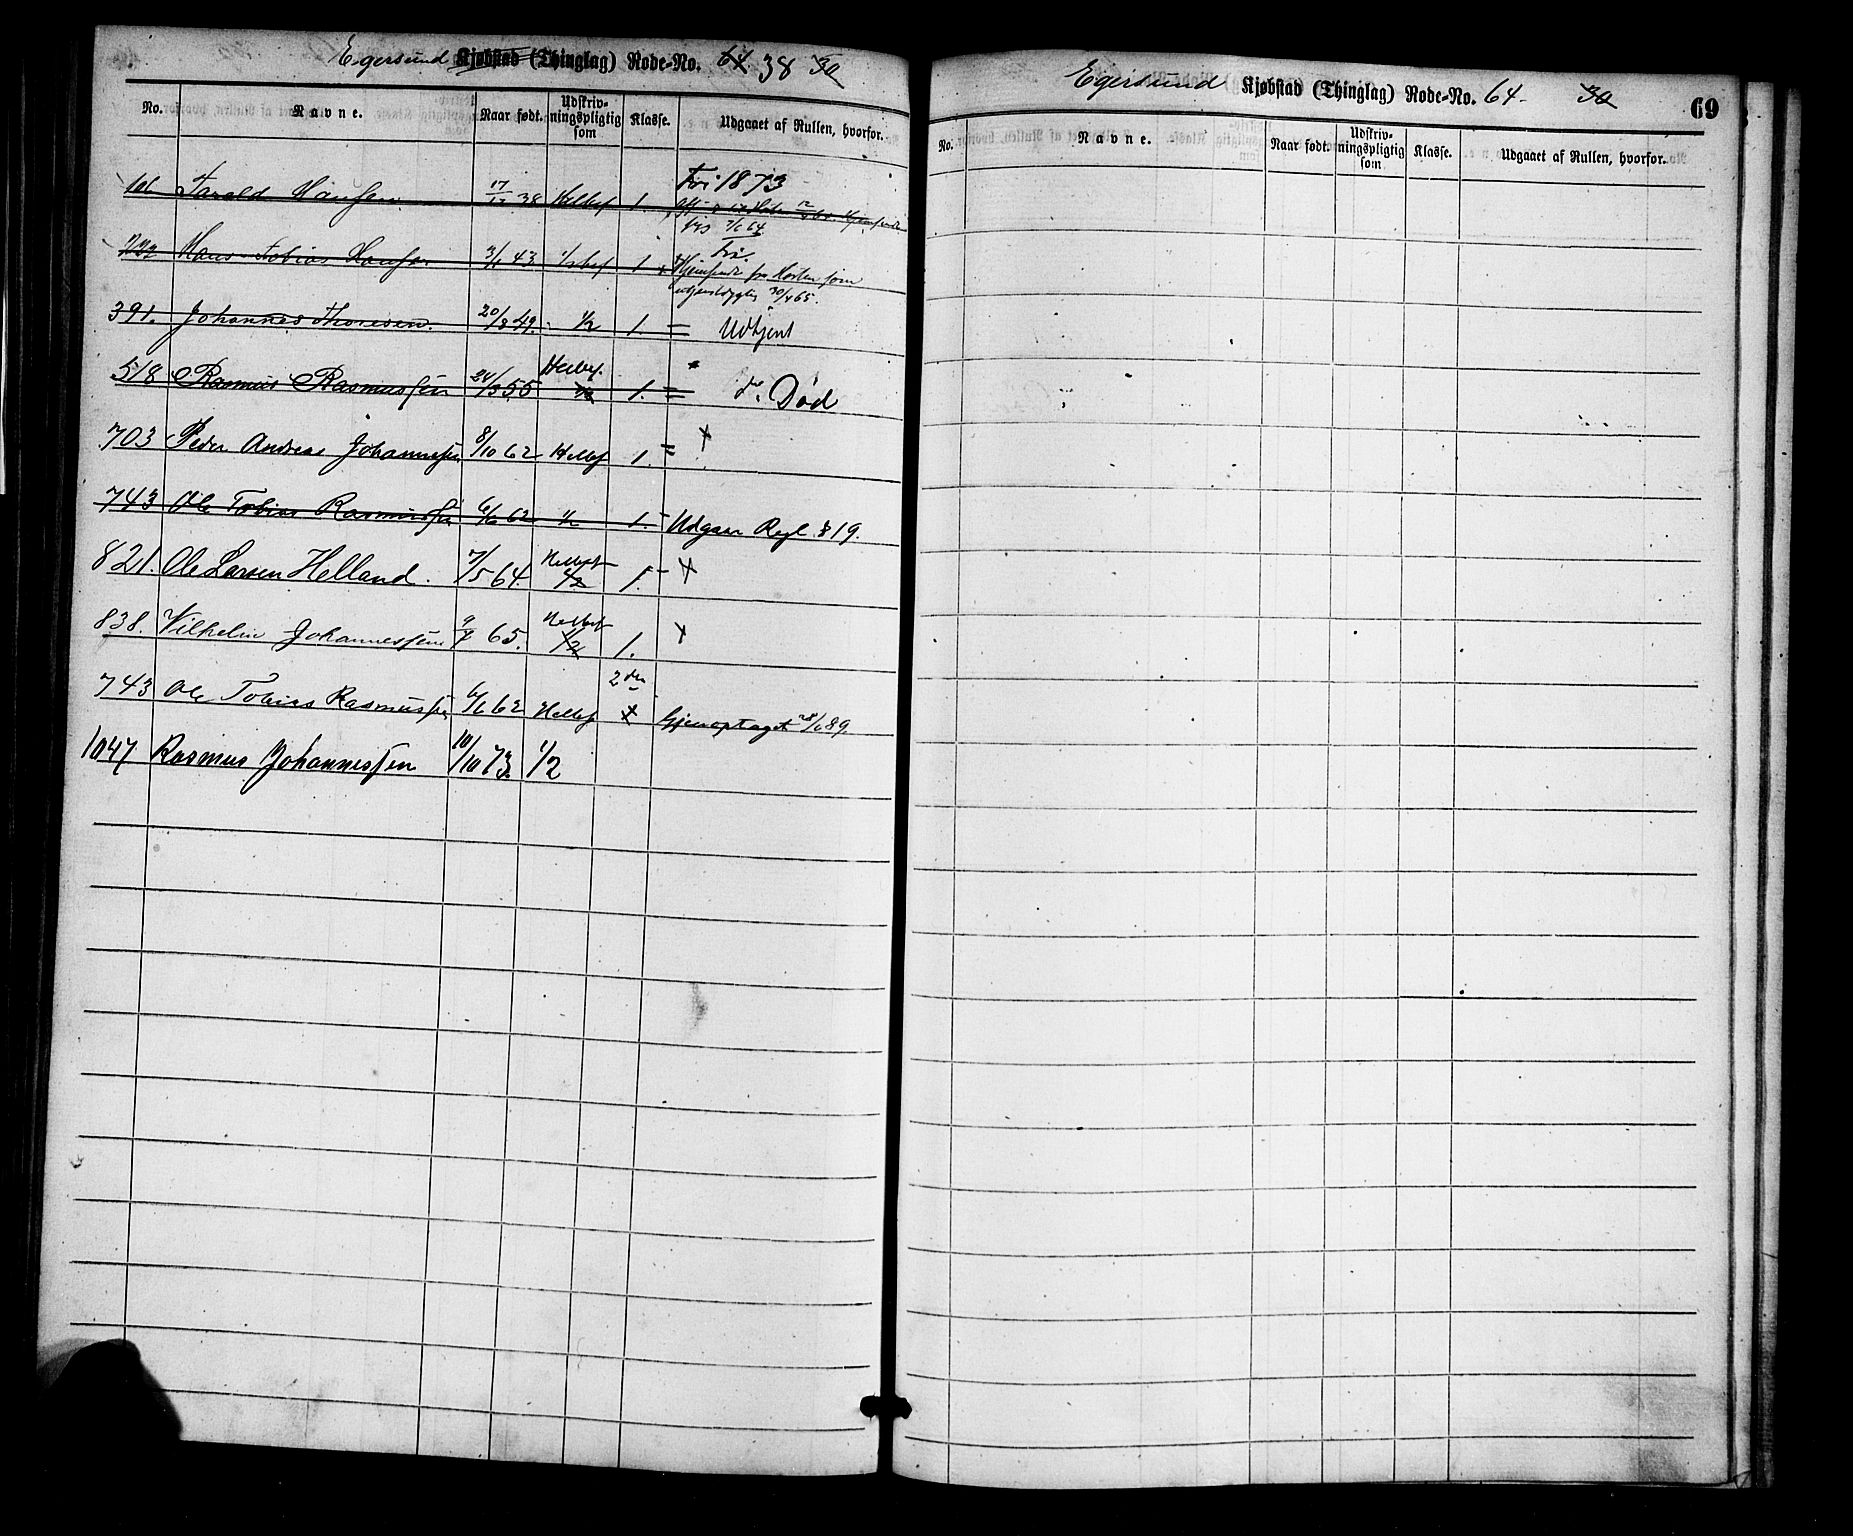 Egersund Kjøbstad (Thinglag) Rode-No. 64 38 30
No. Navne. Naar født. Udskriv-ningspligtig som Klasse. Udgaaet af Rullen, hvorfor.
Fri 1873
101 Tarald Hansen 17/12 38 Helbef 1.
7/6 64
Hans Tobias Hansen 3/1 43 1/2bef 1 Fri.
Hjemsendt fra Horten som
30/4 65.
391. Johannes Thoresen. 20/8 49. 1/2 1. = Udtjent
518 Rasmus Rasmussen 24/3 55 Helbef. 1/2 1. = do. Død
703 Peder Andreas Johannessen 8/10 62 Helbef 1. = x
743 Ole Tobias Rasmussen 6/6 62 1/2 1. Udgaar Regl. § 19.
821. Ole Larsen Helland. 7/5 64. Helbef 1/2 1. x
838. Vilhelm Johannessen 65. Helbef 1/2 1. x
743 Ole Tobias Rasmussen 6/6 62 Helbef 2den x Gjenoptaget 28/6 89.
1047 Rasmus Johannessen 10/10 73. 1/2
Egersund Kjøbstad (Thinglag) Rode-No. 64. 30 69
No. Navne. Naar født. Udskriv-ningspligtig som Klasse. Udgaaet af Rullen, hvorfor.